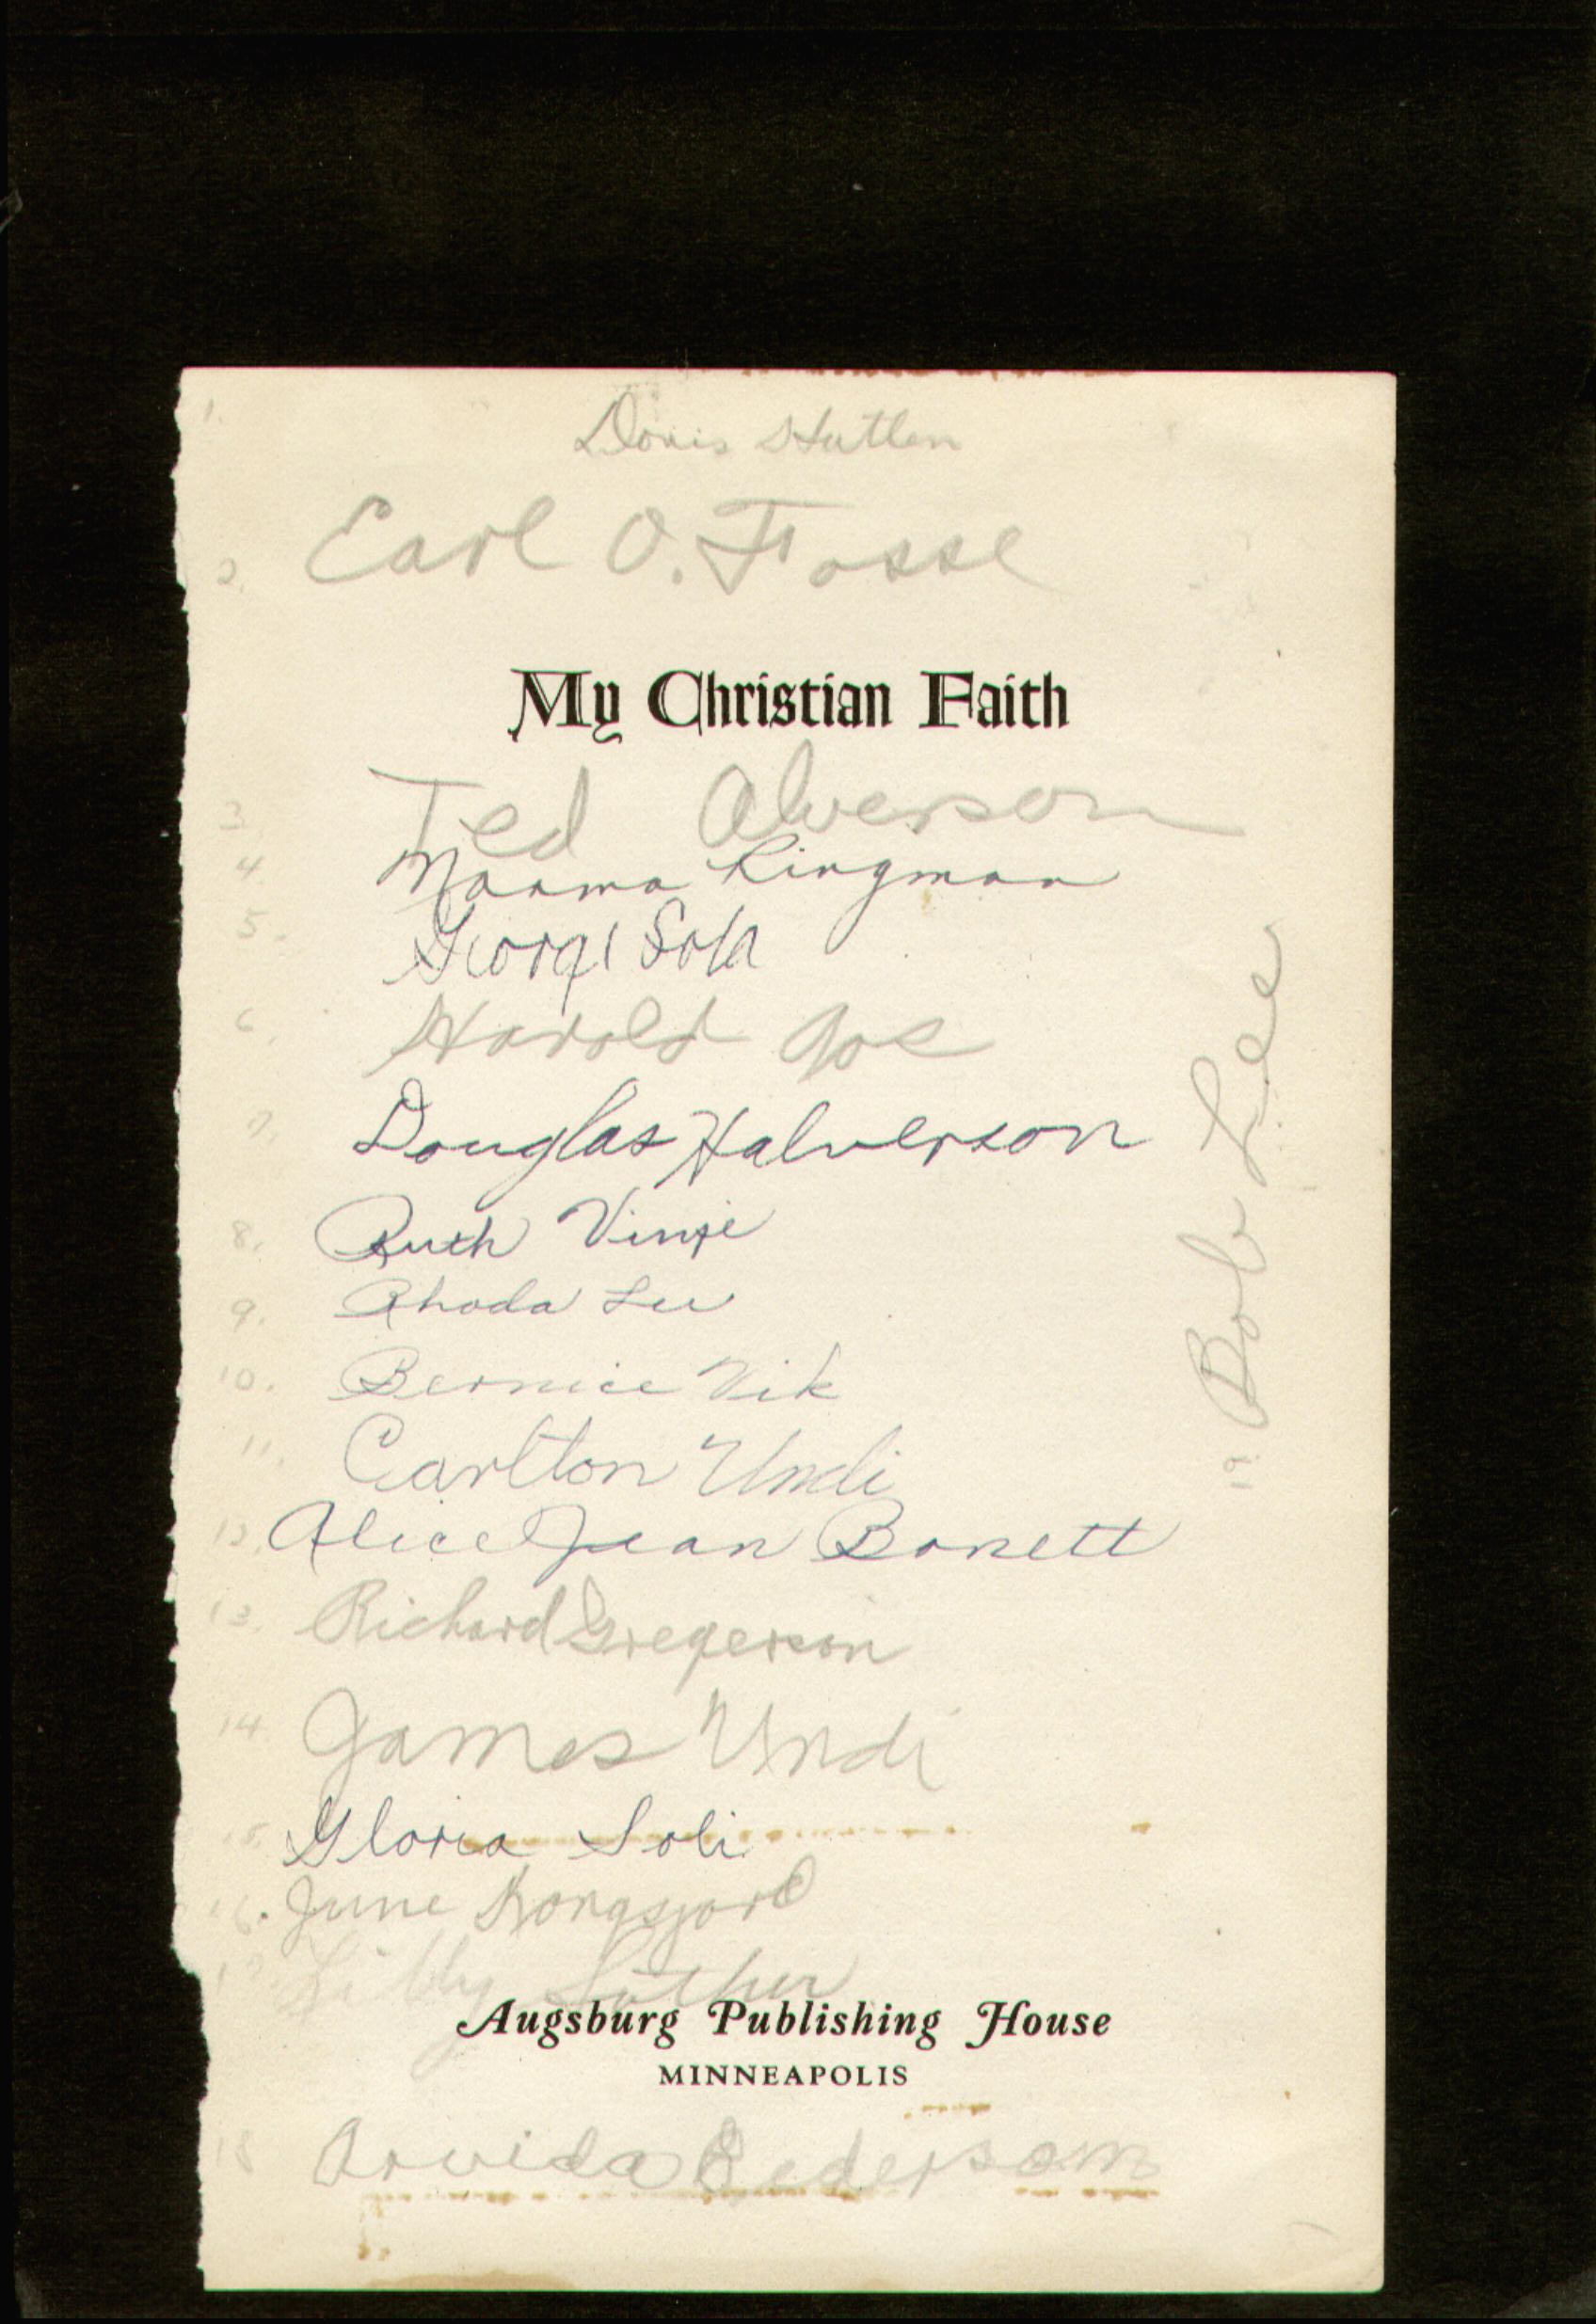 1.
Doris Hutlen
2. Earl O. Fosse
My Christian Faith
3. Ted Alverson
4. Norma Ringman
5. George
6. Harold Joe
7. Douglas Halverson
8. Ruth Vinje
9. Rhoda Lee
10. Bernice Vik
11. Carlton Undi
12. Alice Jean Bonett
13. Richard Gregerson
14. James Undi
15. Gloria Soli
16. June Kongsjord
17. Luther
Augsburg Publishing House
MINNEAPOLIS
18 Arvida Pederson
19. Bob Lee